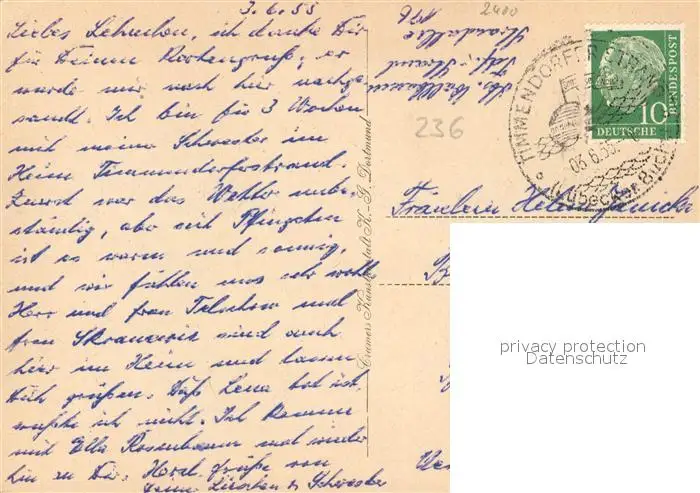 3.6.55
Liebes Lehnchen, ich danke Dir
für Deinen Kartengruß, er
wurde mir nach hier nachge
sandt. Ich bin für 3 Wochen
mit meine Schwester im
Heim Timmendorferstrand.
Zuerst war das Wetter unbe
ständig, aber seit Pfingsten
ist es warm und sonnig,
und wir fühlen uns sehr wohl
Herr und Frau und
Frau sind auch
hier im Heim und lassen
Dich grüßen. Daß Lena tot ist,
wußte ich nicht. Ich komme
mit Ella Rosenbaum mal wieder
hin zu Dir. Herzl. Grüße von
Deine u Schwester
Cramers Kunstanstalt K.-G. Dortmund
2400
236
Strandallee
Tdf. Strand
TIMMENDORFER STRAND
03.6.55
Lübecker Bucht
DEUTSCHE
BUNDESPOST
10
Fräulein Helene Janicke
privacy protection
Datenschutz